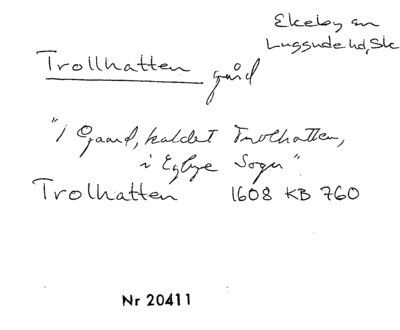 Ekeby sn
Luggude hd, Sk
Trollhatten gård
"1 Gaard, kaldet Trolhatten,
i Egbye Sogn".
Trolhatten 1608 KB 760
Nr 20411